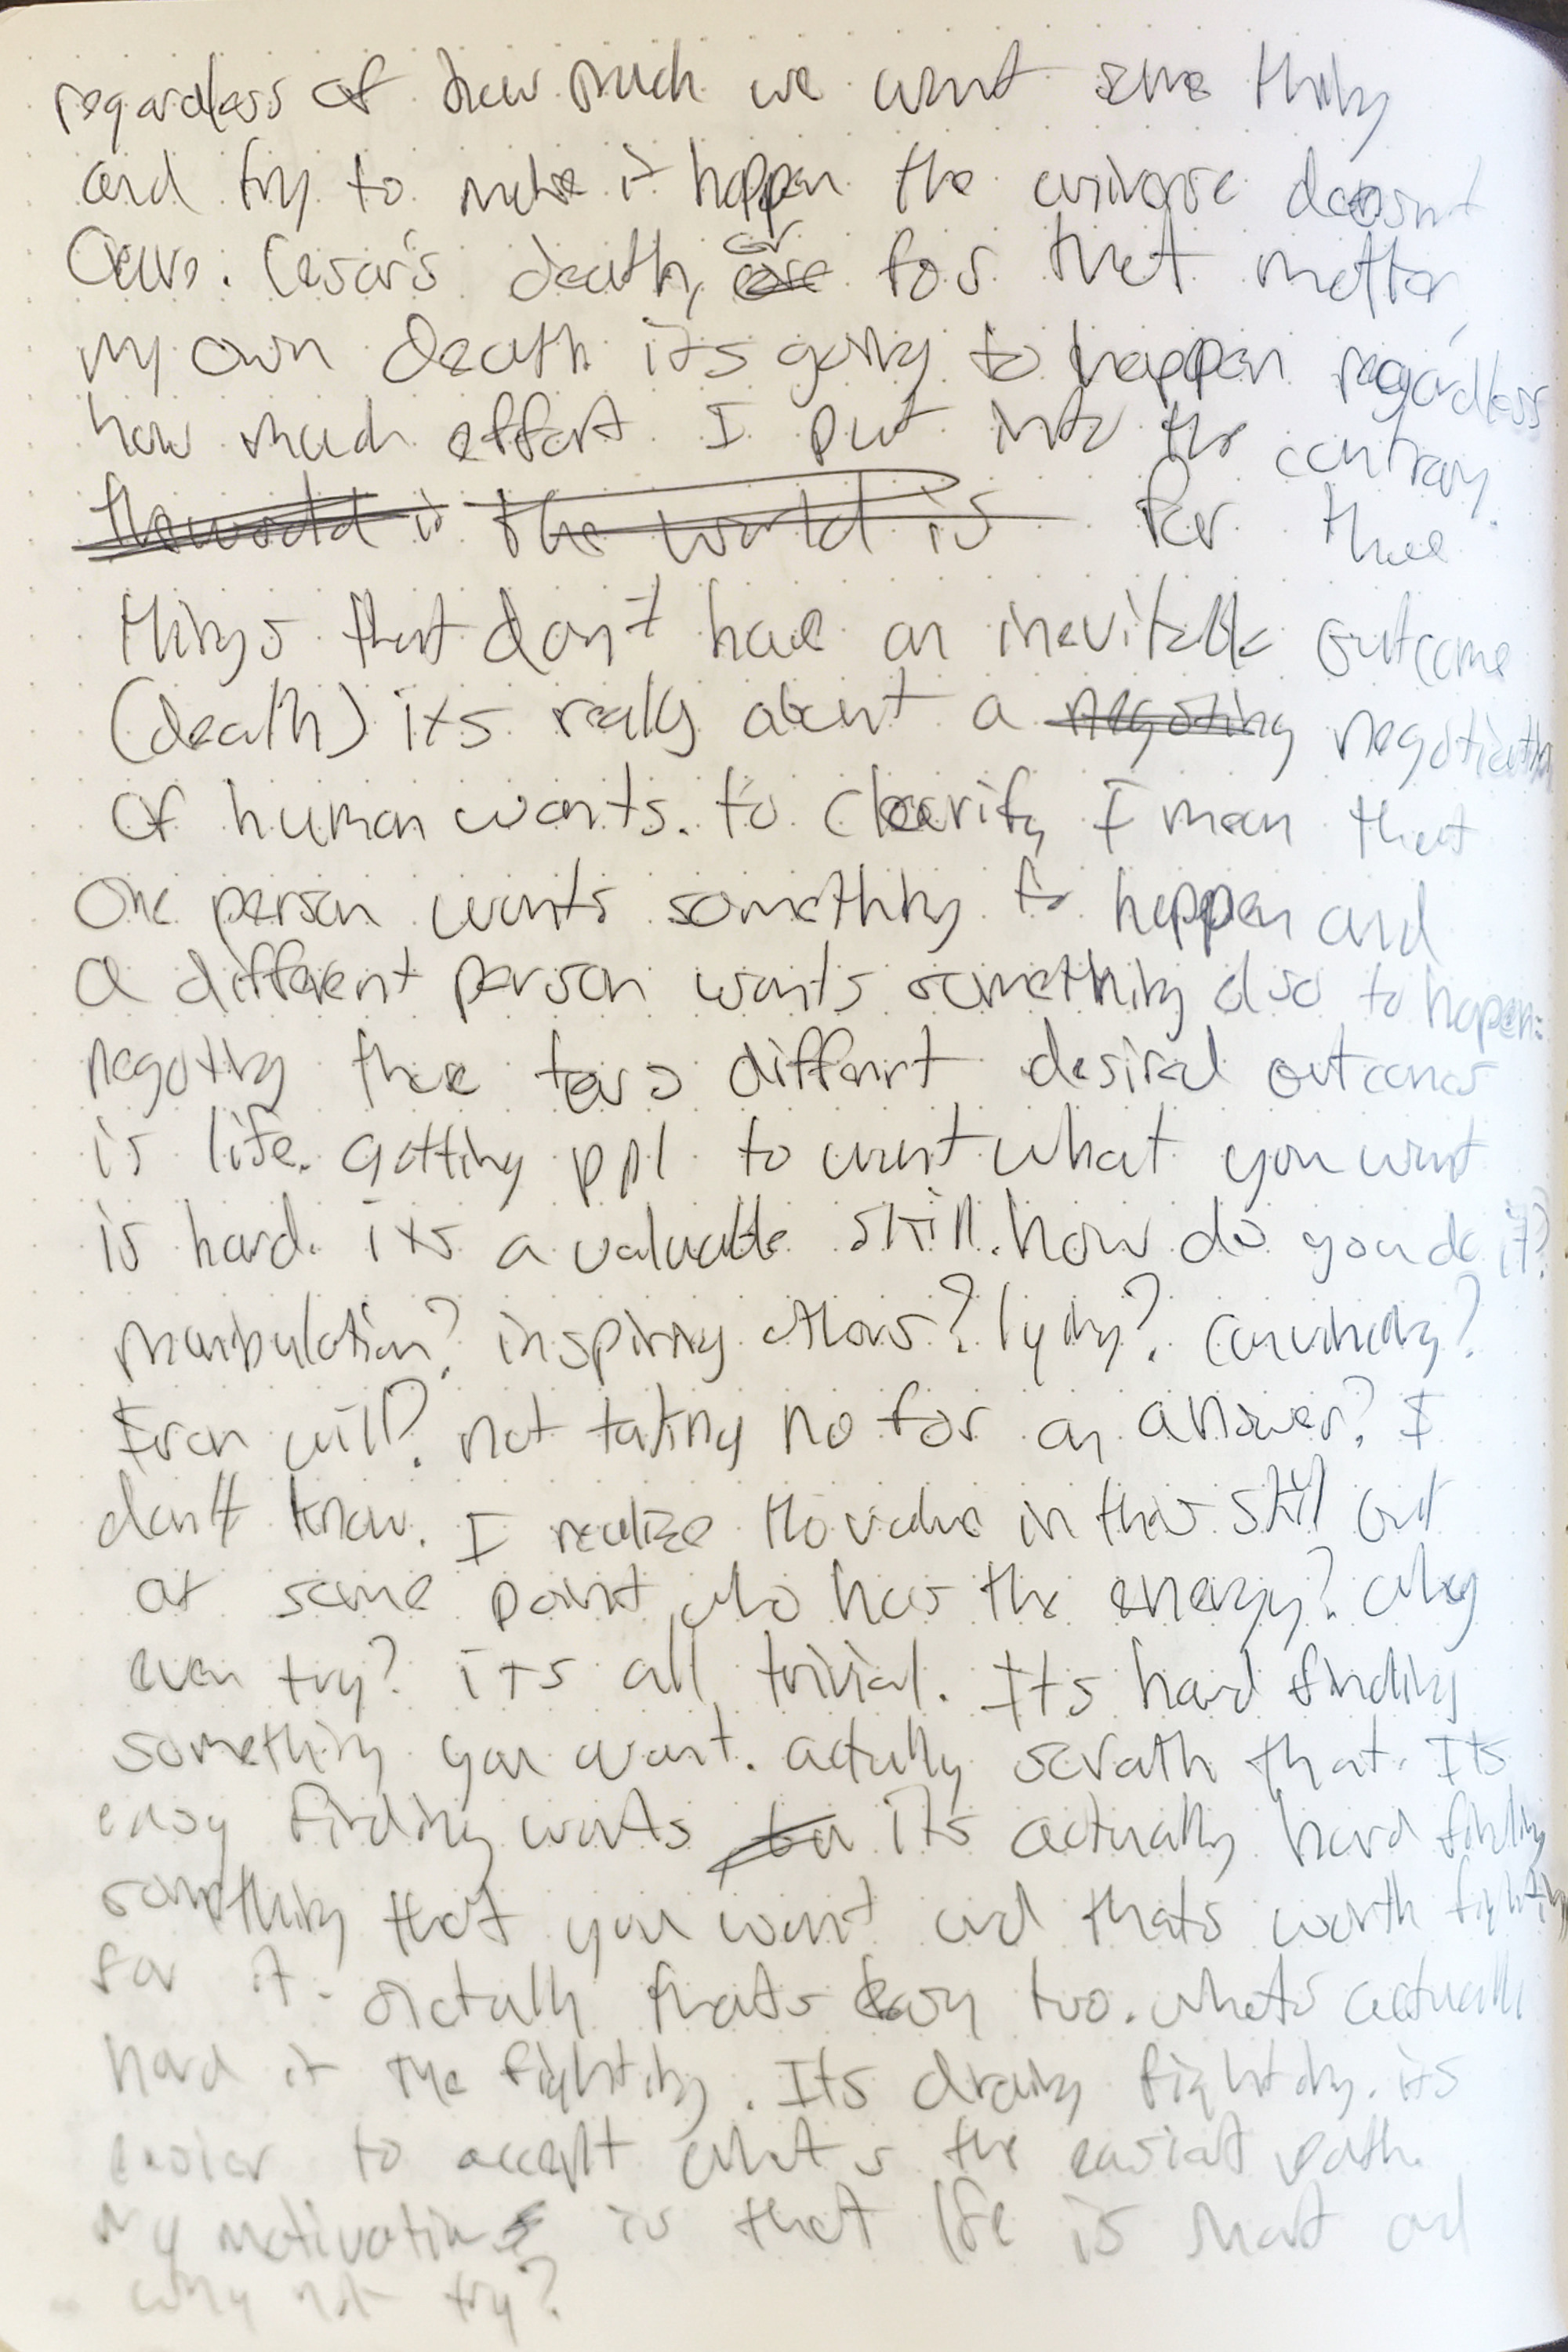 regardless of how much we want some thing
and try to make it happen the universe doesnt
Care. Cesar's death, or for that matter,
my own death its going to happen regardless
how much effort I put into the contrary.
the world is the world is For those
things that don't have an inevitable outcome
(death) its really about a negoting negotiation
of human wants. to clearify I mean that
One person wants something to happen and
a different person wants something also to happen.
negoting these two different desired outcomes
is life. getting ppl to want what you want
is hard. its a valuable skill. how do you do it?
manipulation? inspiring others? lying? convincing?
Iron will? not taking no for an answer? I
don't know. I realize the value in this skill but
at some point who has the energy? why
even try? its all trivial. Its hard finding
something you want. actully scrath that. Its
easy finding wants its actually hard finding
something that you want and thats worth fighting
for it. actully thats easy too. whats actually
hard is the fighting. Its draing fighting. its
easier to accept whats the easiest path.
my motivation is that life is short and
why not try?